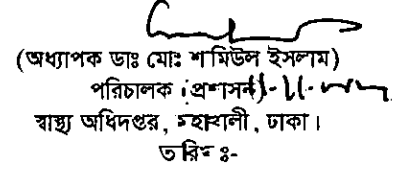 (অধ্যাপক ডাঃ মোঃ শামিউল ইসলাম)
পরিচালক (প্রশাসন)
স্বাস্থ্য অধিদপ্তর, মহাখালী, ঢাকা।
তারিখ ঃ-